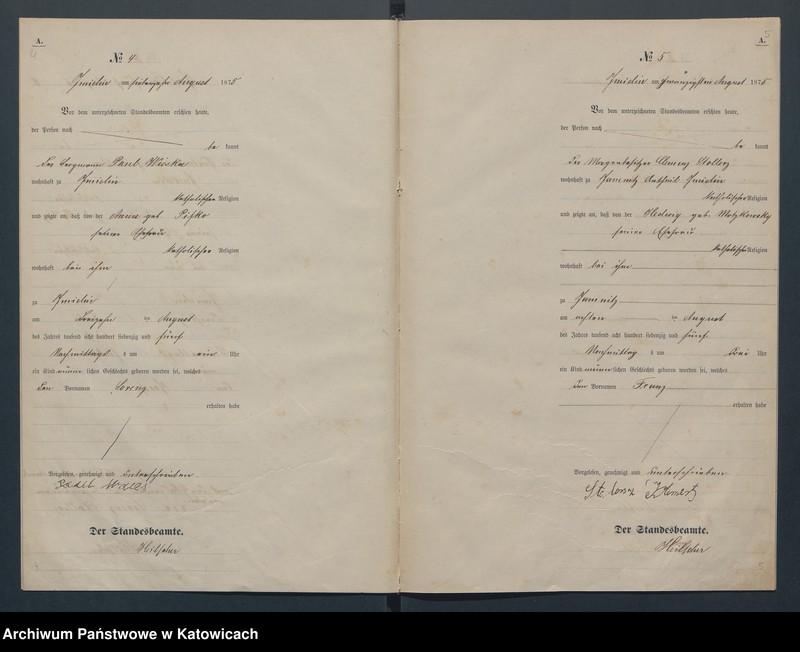 A.
4
№ 4
Imielin am siebenzehn August 1875
Vor dem unterzeichneten Standesbeamten erschien heute,
der Person nach
be kannt
der Bergmann Paul
wohnhaft zu Imielin
katholischer Religion
und zeigte an, daß von der Anna geb.
seiner Ehefrau
katholischer Religion
wohnhaft bei ihm
zu Imielin
am dreizehn ten August
des Jahres tausend acht hundert siebenzig und fünf
Nachmittags um ein Uhr
ein Kind männ lichen Geschlechts geboren worden sei, welches
den Vornamen Lorenz
erhalten habe
Vorgelesen, genehmigt und unterschrieben
Der Standesbeamte.
5
A.
№ 5
Imielin am zwanzigsten August 1875
Vor dem unterzeichneten Standesbeamten erschien heute,
der Person nach
be kannt
der
wohnhaft zu Jamnitz Antheil Imielin
katholischer Religion
und zeigte an, daß von der Hedwig geb.
seiner Ehefrau
katholischer Religion
wohnhaft bei ihm
zu Jamnitz
am achten August
des Jahres tausend acht hundert siebenzig und fünf
Nachmittag um drei Uhr
ein Kind männ lichen Geschlechts geboren worden sei, welches
den Vornamen Franz
erhalten habe
Vorgelesen, genehmigt und unterschrieben
Der Standesbeamte.
Archiwum Państwowe w Katowicach